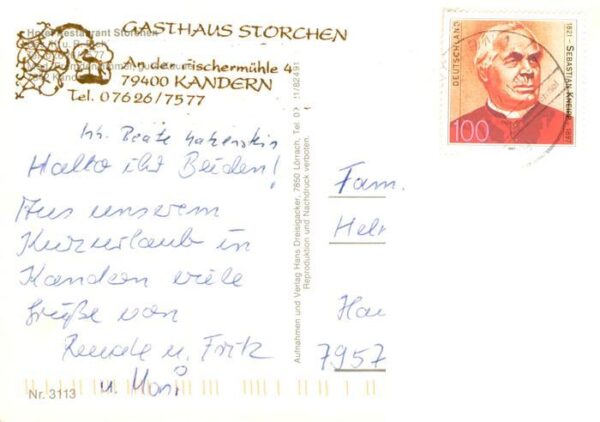 GASTHAUS STORCHEN
In der Fischermühle 4
79400 KANDERN
Tel. 07626/7577
Hotel Restaurant Storchen
Inh. Beate
Hallo ihr Beiden!
Aus unserem
Kurzurlaub in
Kandern viele
Grüße von
Renate u. Fritz
u. Moni
Nr. 3113
Aufnahmen und Verlag Hans Dreisigacker, 7850 Lörrach, Tel.
Reproduktion und Nachdruck verboten.
DEUTSCHLAND
100
1821 – SEBASTIAN KNEIPP 1897
Fam.
Hel
Hau
7957